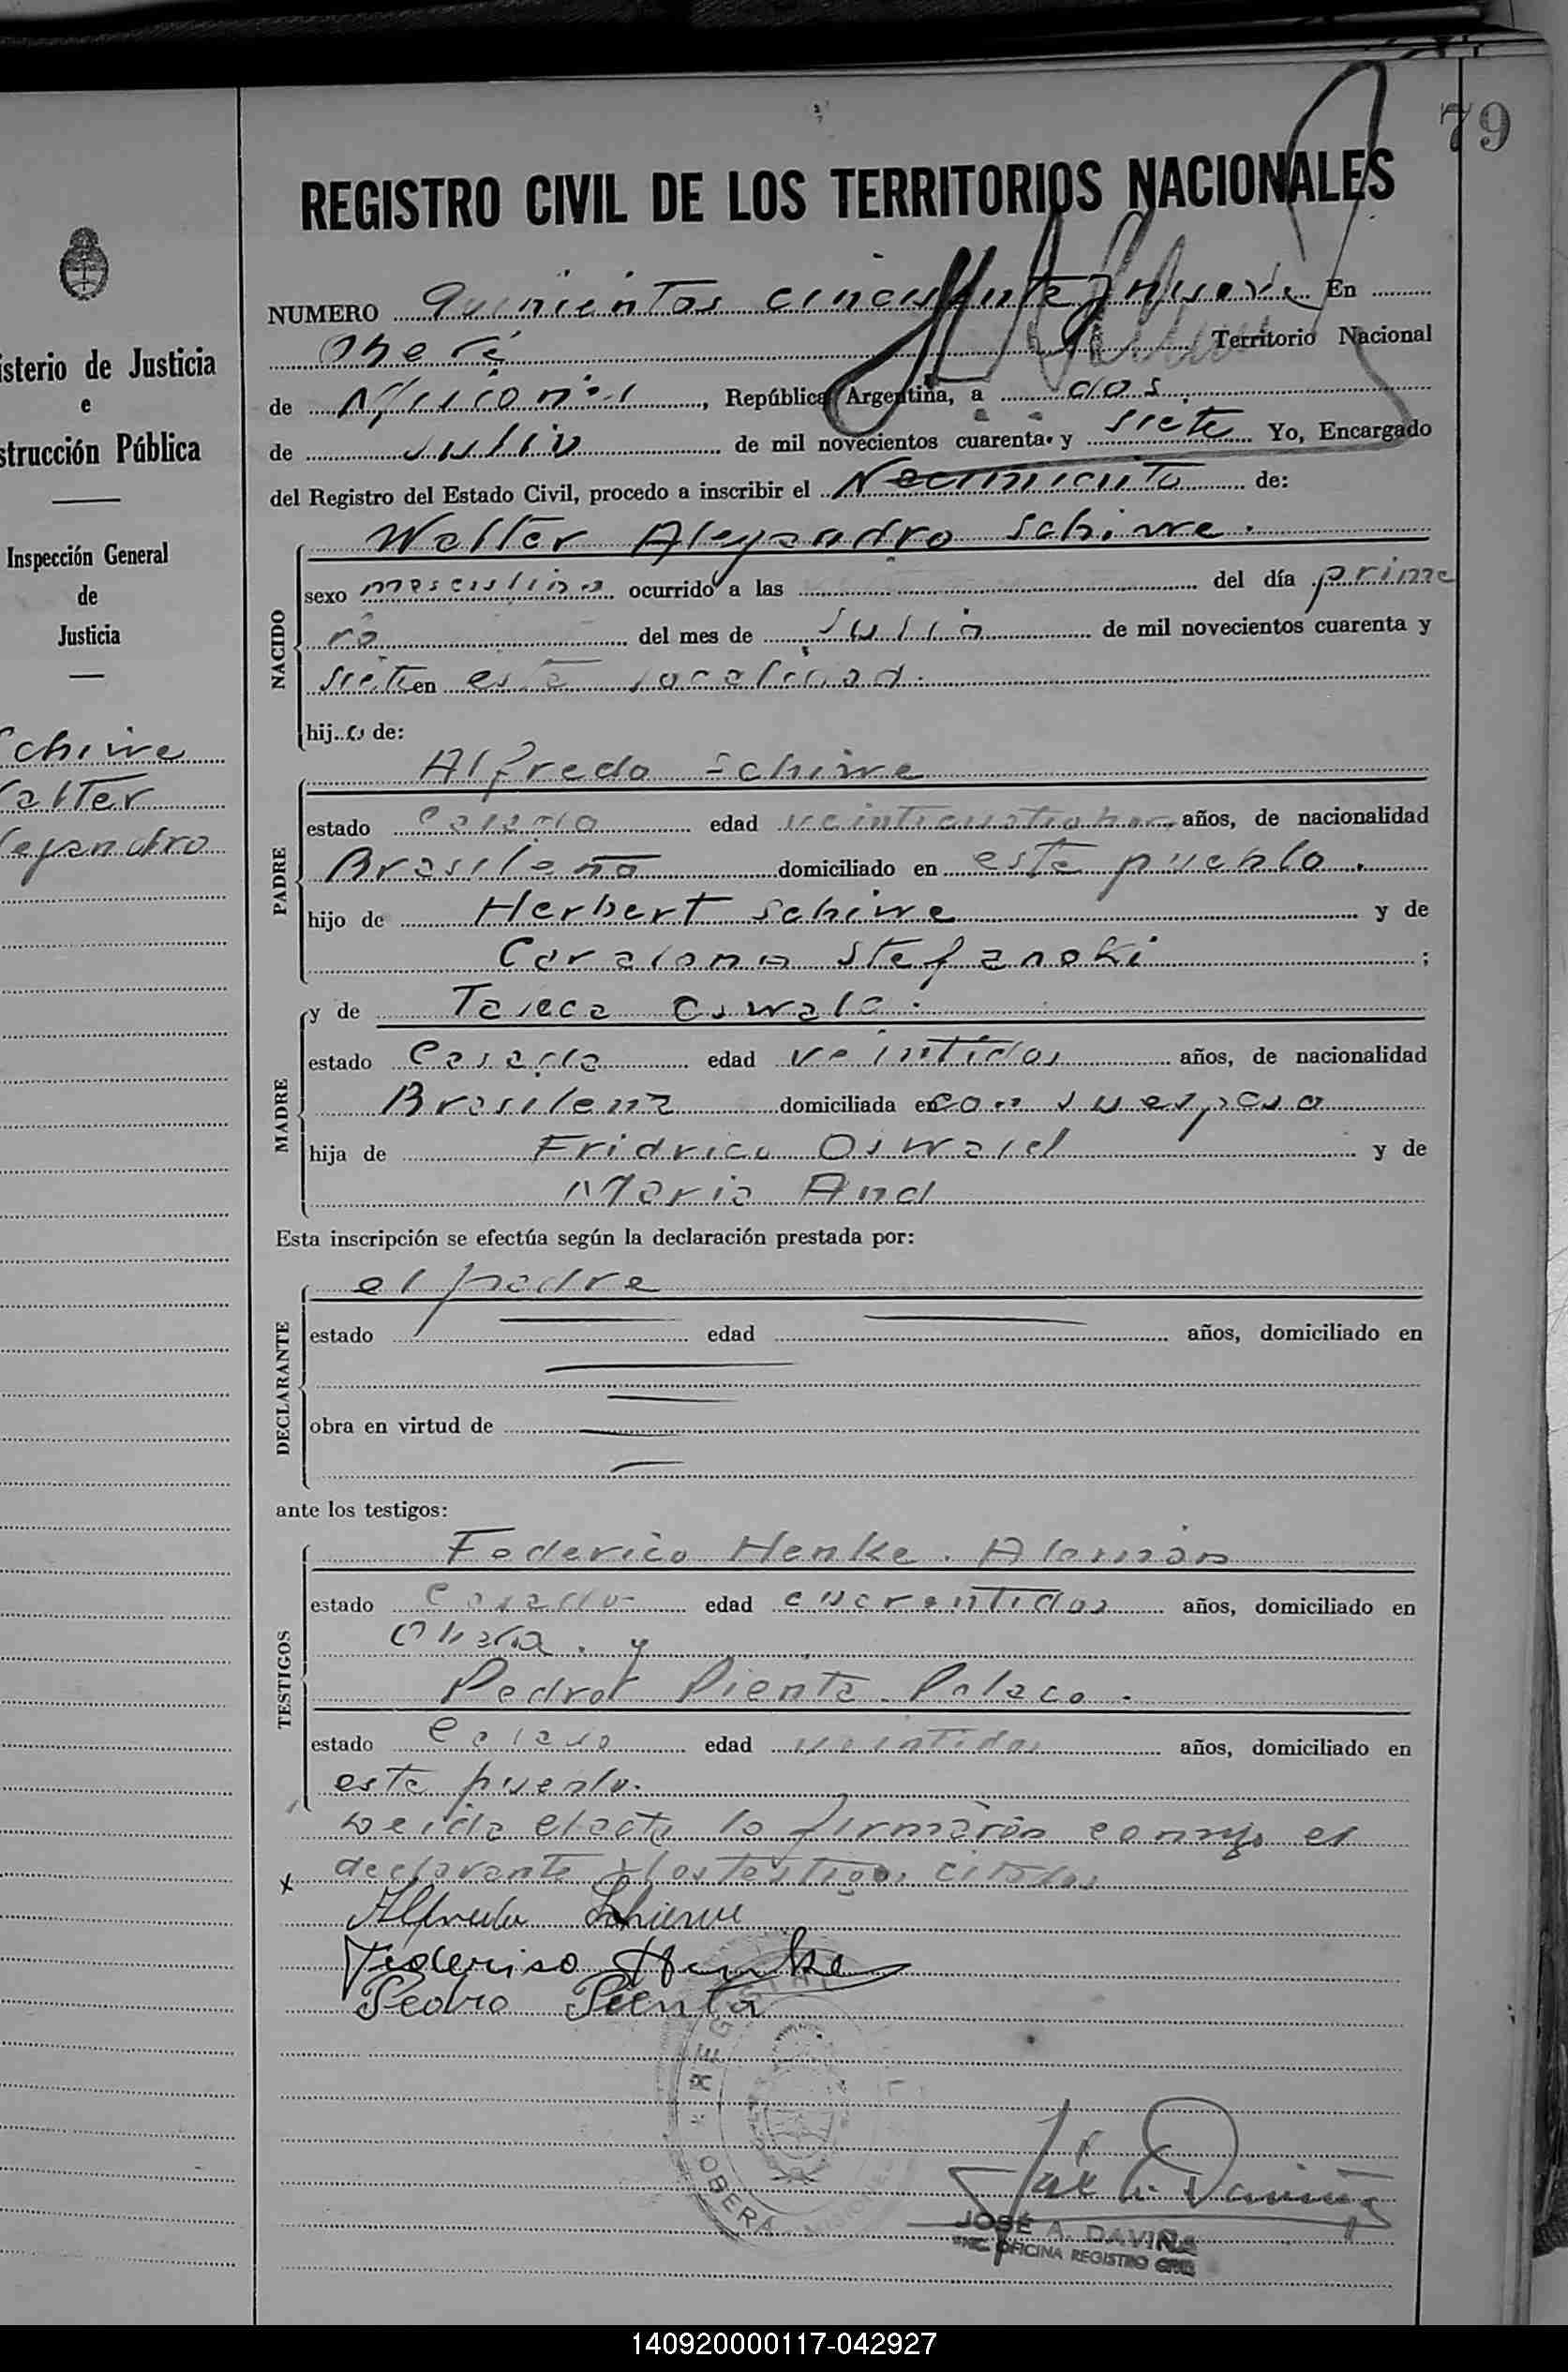 79
REGISTRO CIVIL DE LOS TERRITORIOS NACIONALES
NUMERO quinientos cincuenta y nueve En
Oberá Territorio Nacional
de Misiones, República Argentina, a dos
de Julio de mil novecientos cuarenta y siete Yo, Encargado
del Registro del Estado Civil, procedo a inscribir el Nacimiento de:
NACIDO
Walter Aleyandro Schiwe.
sexo masculino ocurrido a las del día prime
ro del mes de Julio de mil novecientos cuarenta y
siete en esta localidad.
hijo de:
PADRE
Alfredo Schiwe
estado casado edad años, de nacionalidad
Brasileña domiciliado en este pueblo.
hijo de Herbert Schiwe y de
Stefanoki ;
MADRE
y de
estado Casada edad veintidos años, de nacionalidad
Brasilena domiciliada en con su esposo
hija de Fridrico Oswald y de
Maria And
Esta inscripción se efectúa según la declaración prestada por:
DECLARANTE
el padre
estado edad años, domiciliado en
obra en virtud de
ante los testigos:
TESTIGOS
Federico Henke. Aleman
estado casado edad cuarentidos años, domiciliado en
Obera. y
Pedro Pienta. Polaco.
estado casado edad veintidos años, domiciliado en
este pueblo.
Leida el acta la firmarón conmigo el
declarante y los testigos citados
Alfredo Schiewe
Federiso Henke
Pedro Pienta
REGISTRO
OBERA MISIONES
JOSÉ A. DAVIÑA
ENC. OFICINA REGISTRO CIVIL
isterio de Justicia
e
strucción Pública
Inspección General
de
Justicia
Schiwe
Walter
leyandro
140920000117-042927